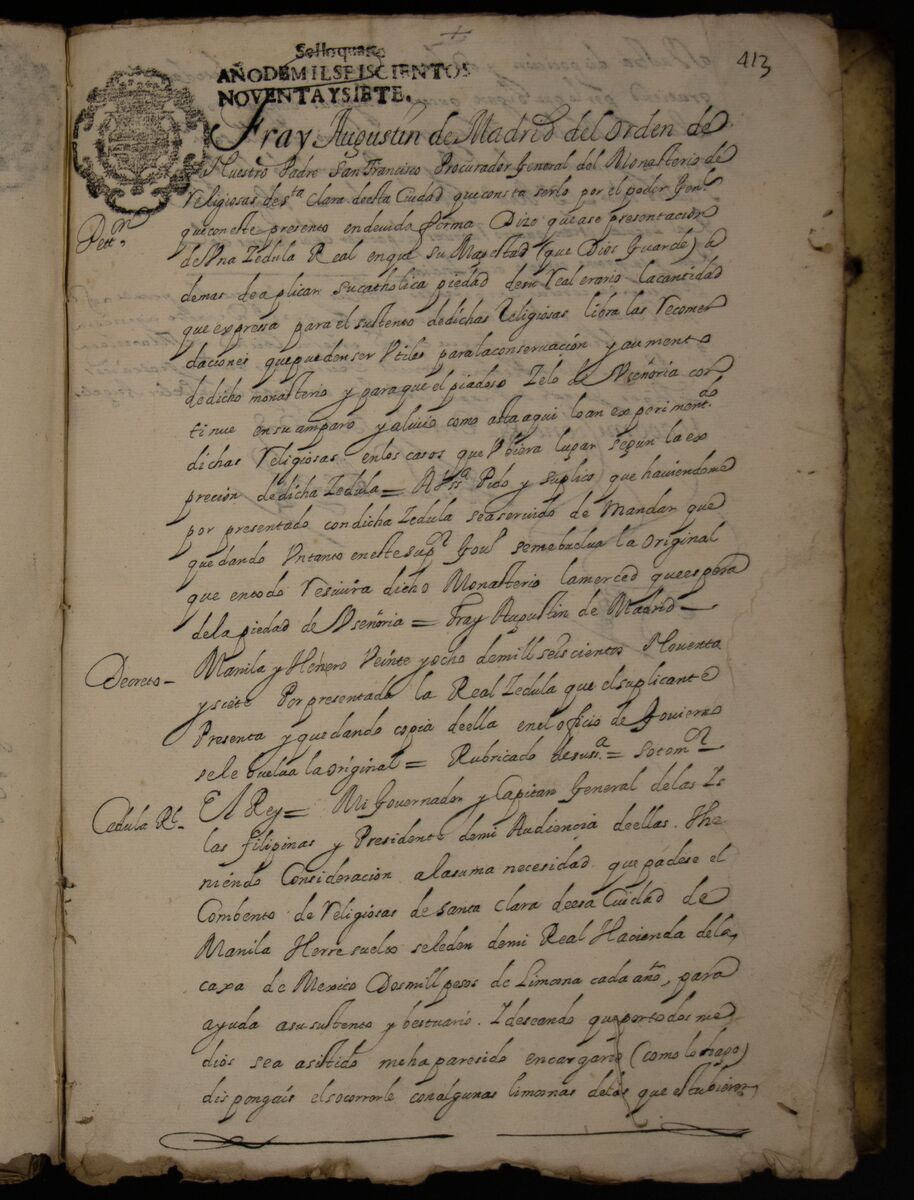 +
413
Sello quarto
AÑO DE MIL SEISCIENTOS
NOVENTA Y SIETE.
Fray Augustin de Madrid del orden de
Nuestro Padre San Francisco Procurador General del Monasterio de
Religiosas de s.ta Clara desta Ciudad que consta serlo por el poder Genl.
Pett.on
que con este presento en devida forma Dize que ase presentacion
de Vna Zedula Real en que su Magestad (que Dios Guarde) a
demas de aplicar su catholica piedad de su Real erario la cantidad
que expressa para el sustento de dichas Religiosas libra las Recomen
daciones que pueden ser Vtiles para la conservación y aumento
de dicho monasterio y para que el piadoso Zelo de Vseñoria con
tinue en su amparo y alivio como asta aqui lo an experiment.do
dichas Religiosas en los casos que Vbiera lugar segun la ex
precion de dicha Zedula = A Vss.a Pido y Suplico que haviendome
por presentado con dicha Zedula sea servido de Mandar que
quedando Vn tanto en este sup.or Gov.o se me buelua la Original
que en todo Resivirá dicho Monasterio la merced que espera
de la piedad de Vseñoria = Fray Augustin de Madrid —
Decreto –
Manila y Henero Veinte y ocho de mill seis cientos Noventa
y siete Por presentada la Real Zedula que el suplicante
Presenta y quedando copia de ella en el oficio de Govierno
se le buelua la original = Rubricado de su s.a = Sotom.or
Cedula Rl. –
El Rey = Mi Governador y Capitan General de las Is
las filipinas y Presidente de mi Audiencia de ellas. The
niendo Consideración a la suma necesidad que padese el
Combento de Religiosas de santa Clara de esa Cuidad de
Manila He rresuelto se le den de mi Real Hacienda de la
caxa de Mexico Dos mill pesos de Limosna cada año, para
ayuda a su sustento y bestuario. I deseando que por todos me
dios sea asistido me ha paresido encargaros (como lo hago)
dispongais el socorrerle con algunas limosnas de las que estubieren